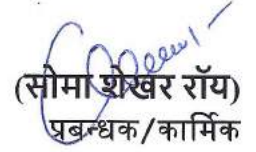 (सोमा शेखर रॉय)
प्रबन्धक/कार्मिक